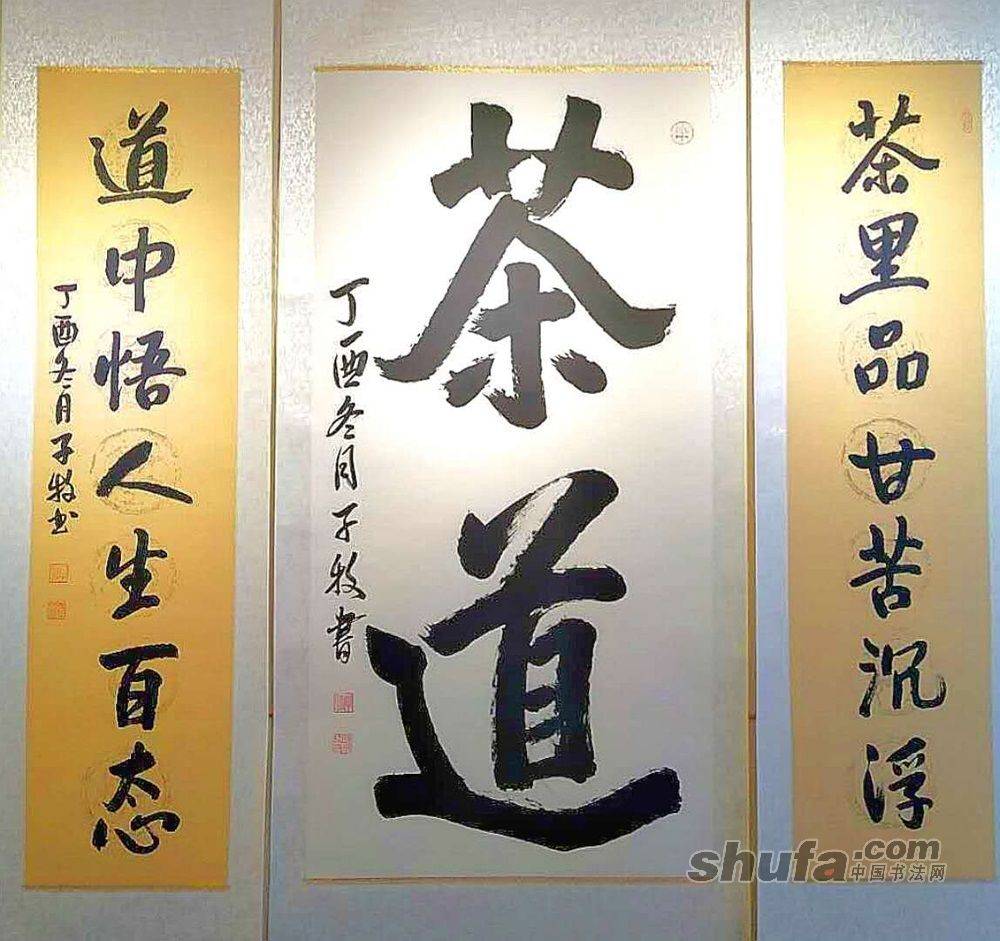 茶里品甘苦沉浮
茶道
丁酉冬月子牧書
道中悟人生百态
丁酉冬月子牧书
shufa.com
中国书法网